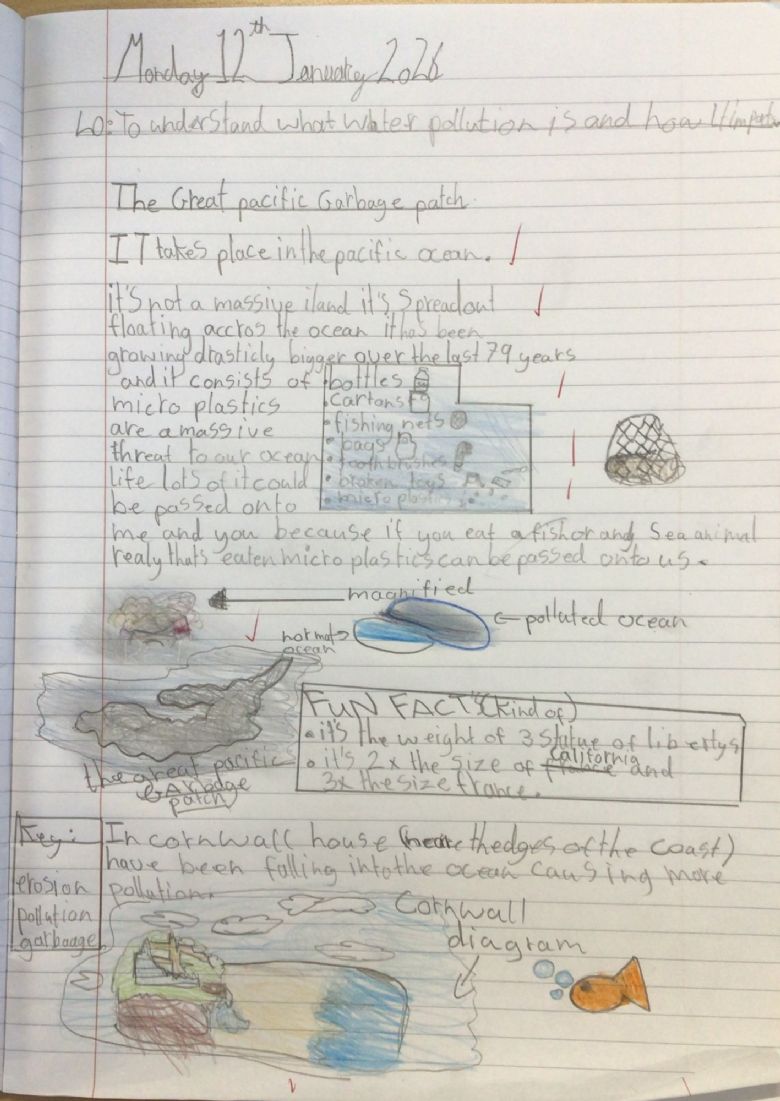 Monday 12th January 2026
LO: To understand what water pollution is and how it impacts
The Great pacific Garbage patch.
IT takes place in the pacific ocean.
it's not a massive iland it's Spreadout
floating accros the ocean it has been
growing drasticly bigger over the last 79 years
and it consists of • bottles
micro plastics • Cartons
are a massive • fishing nets
threat to our ocean • bags
• toothbrushes
life lots of it could • broken toys
be passed onto • micro plastics
me and you because if you eat a fish or any Sea animal
realy thats eaten micro plastics can be passed onto us.
magnified
normal ocean
polluted ocean
the great pacific
Garbage
patch
FUN FACTS (kind of)
• it's the weight of 3 Statue of libertys
• it's 2x the size of california and
3x the size france.
Key:
erosion
pollution
garbage
In cornwall house (near the edges of the coast)
have been falling into the ocean causing more
pollution.
Cornwall
diagram